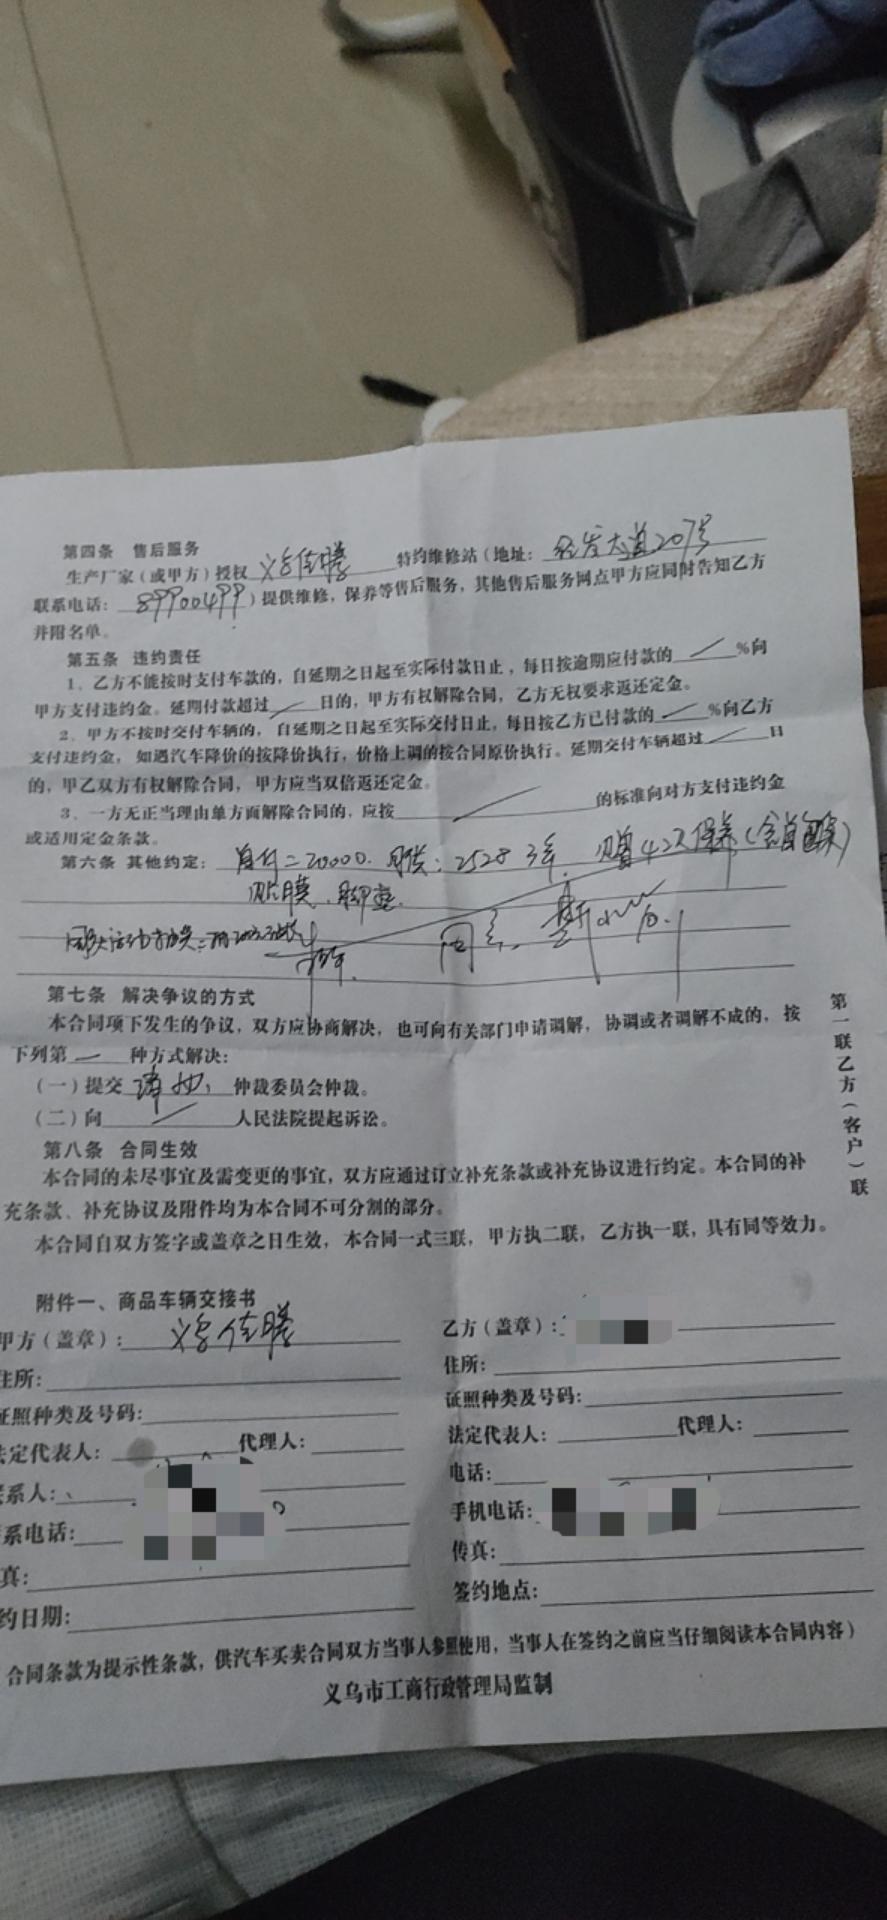 第四条 售后服务
生产厂家（或甲方）授权 义乌佳腾 特约维修站（地址： 经发大道207号
联系电话： 89900499 ）提供维修，保养等售后服务，其他售后服务网点甲方应同时告知乙方
并附名单。
第五条 违约责任
1、乙方不能按时支付车款的，自延期之日起至实际付款日止，每日按逾期应付款的 %向
甲方支付违约金。延期付款超过 日的，甲方有权解除合同，乙方无权要求返还定金。
2、甲方不按时交付车辆的，自延期之日起至实际交付日止，每日按乙方已付款的 %向乙方
支付违约金，如遇汽车降价的按降价执行，价格上调的按合同原价执行。延期交付车辆超过 日
的，甲乙双方有权解除合同，甲方应当双倍返还定金。
3、一方无正当理由单方面解除合同的，应按 的标准向对方支付违约金
或适用定金条款。
第六条 其他约定： 首付=20000. 月供：2528 3年. 贝曾42次保养（含首保）
贴膜、脚垫.
第七条 解决争议的方式
本合同项下发生的争议，双方应协商解决，也可向有关部门申请调解，协调或者调解不成的，按
下列第 一 种方式解决：
（一）提交 仲裁委员会仲裁。
（二）向 人民法院提起诉讼。
第八条 合同生效
本合同的未尽事宜及需变更的事宜，双方应通过订立补充条款或补充协议进行约定。本合同的补
充条款、补充协议及附件均为本合同不可分割的部分。
本合同自双方签字或盖章之日生效，本合同一式三联，甲方执二联，乙方执一联，具有同等效力。
第一联乙方（客户）联
附件一、商品车辆交接书
甲方（盖章）： 义乌佳腾
住所：
证照种类及号码：
法定代表人： 代理人：
联系人：
联系电话：
真：
约日期：
乙方（盖章）：
住所：
证照种类及号码：
法定代表人： 代理人：
电话：
手机电话：
传真：
签约地点：
合同条款为提示性条款，供汽车买卖合同双方当事人参照使用，当事人在签约之前应当仔细阅读本合同内容）
义乌市工商行政管理局监制